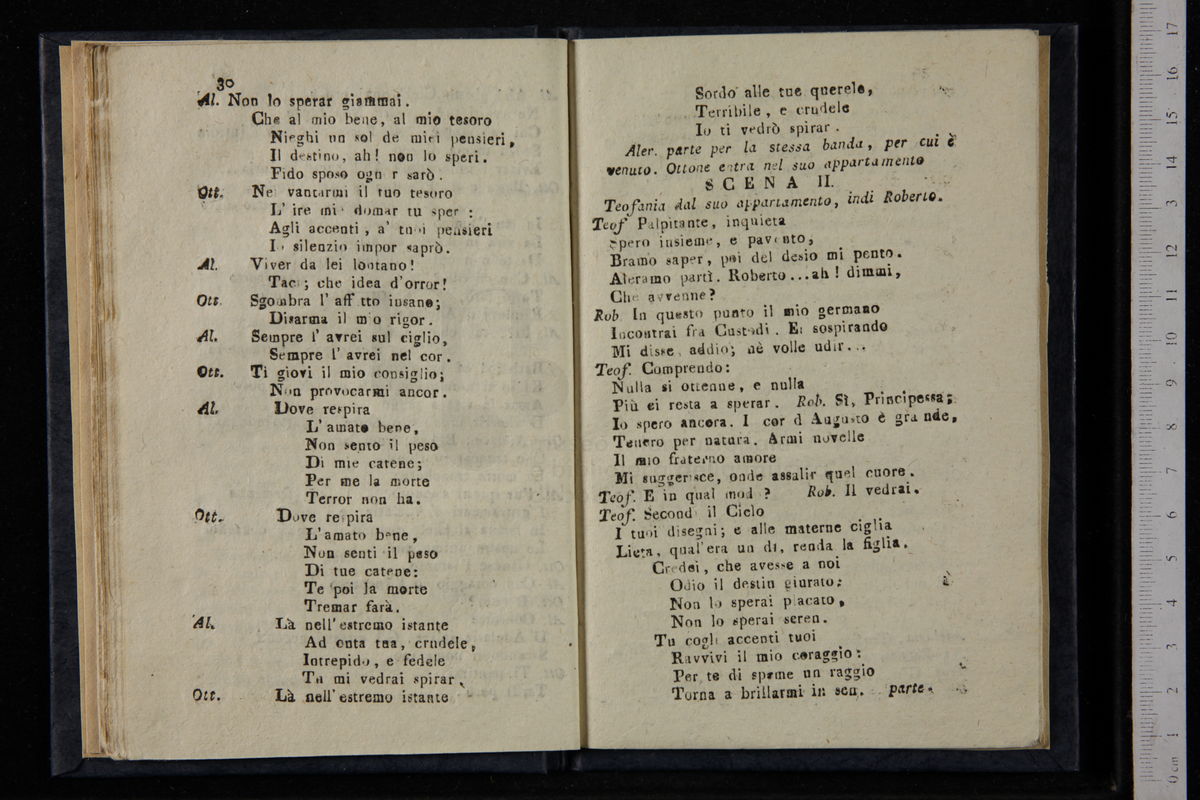 30
Al. Non lo sperar giammai.
Che al mio bene, al mio tesoro
Nieghi un sol de miei pensieri,
Il destino, ah! non lo speri.
Fido sposo ogn r sarò.
Ott. Nei vantarmi il tuo tesoro
L' ire mi domar tu sper :
Agli accenti, a' tuoi pensieri
Io silenzio impor saprò.
Al. Viver da lei lontano!
Taci; che idea d'orror!
Ott. Sgombra l' aff tto insano;
Disarma il m o rigor.
Al. Sempre l' avrei sul ciglio,
Sempre l' avrei nel cor.
Ott. Ti giovi il mio consiglio;
Non provocarmi ancor.
Al. Dove respira
L' amato bene,
Non sento il peso
Di mie catene;
Per me la morte
Terror non ha.
Ott. Dove respira
L' amato bene,
Non senti il peso
Di tue catene:
Te poi la morte
Tremar farà.
Al. Là nell' estremo istante
Ad onta tua, crudele,
Intrepido, e fedele
Tu mi vedrai spirar.
Ott. Là nell' estremo istante
Sordo alle tue querele,
Terribile, e crudele
Io ti vedrò spirar.
Aler. parte per la stessa banda, per cui è
venuto. Ottone entra nel suo appartamento
SCENA II.
Teofania dal suo appartamento, indi Roberto.
Teof Palpitante, inquieta
Spero insieme, e pavento,
Bramo saper, poi del desio mi pento.
Aleramo partì. Roberto...ah! dimmi,
Che avvenne?
Rob In questo punto il mio germano
Incontrai fra Custodi. Ei sospirando
Mi disse, addio; nè volle udir...
Teof. Comprendo:
Nulla si ottenne, e nulla
Più ci resta a sperar. Rob. Sì, Principessa;
Io spero ancora. I cor d Augusto è grande,
Tenero per natura. Armi novelle
Il mio fraterno amore
Mi suggerisce, onde assalir quel cuore.
Teof. E in qual mod ? Rob. Il vedrai.
Teof. Second il Cielo
I tuoi disegni; e alle materne ciglia
Lieta, qual'era un dì, renda la figlia.
Credei, che avesse a noi
Odio il destin giurato:
Non lo sperai placato,
Non lo sperai seren.
Tu cogli accenti tuoi
Ravvivi il mio coraggio:
Per te di speme un raggio
Torna a brillarmi in sen. parte.
0 cm 1 2 3 4 5 6 7 8 9 10 11 12 13 14 15 16 17